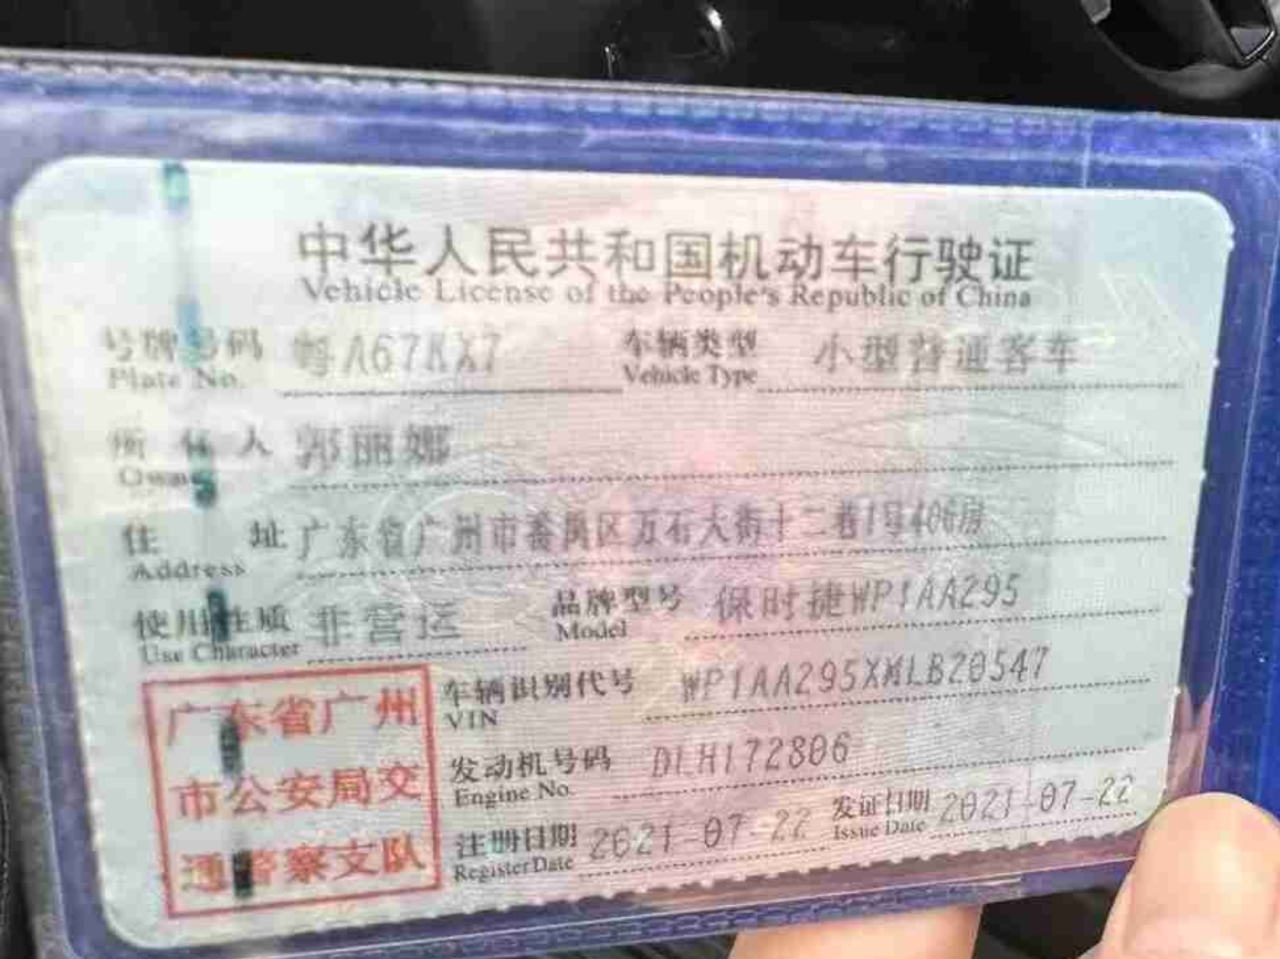 中华人民共和国机动车行驶证
Vehicle License of the People's Republic of China
号牌号码 粤A67KX7 车辆类型 小型普通客车
Plate No. Vehicle Type
所有人 郭丽娜
Owner
住址 广东省广州市番禺区万石大街十二巷1号406房
Address
使用性质 非营运 品牌型号 保时捷WP1AA295
Use Character Model
车辆识别代号 WP1AA295XMLB20547
VIN
发动机号码 DLH172806
Engine No.
注册日期 2021-07-22 发证日期 2021-07-22
Register Date Issue Date
广东省广州
市公安局交
通警察支队